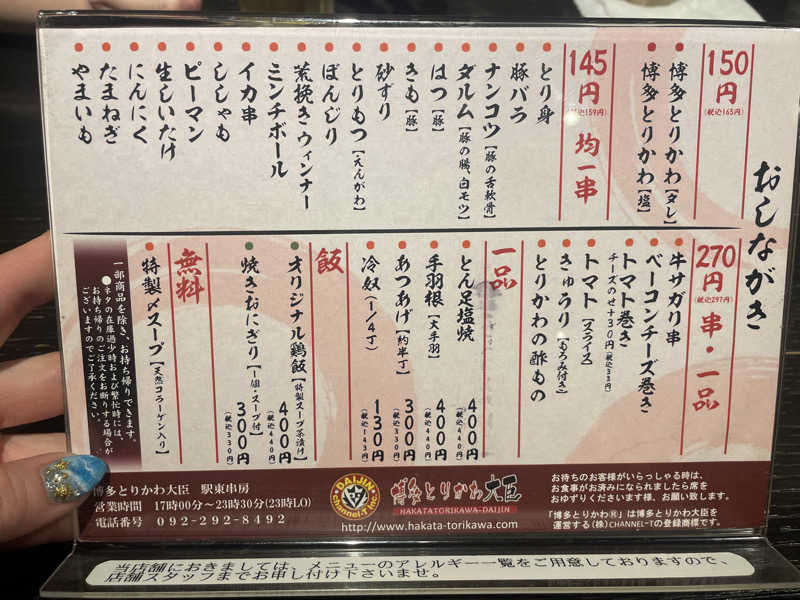 おしながき
150円
(税込165円)
博多とりかわ【タレ】
博多とりかわ【塩】
145円
(税込159円)
均一串
とり身
豚バラ
ナンコツ【豚の舌軟骨】
ダルム【豚の腸、白モツ】
はつ【豚】
きも【豚】
砂ずり
とりもつ【えんがわ】
ぼんじり
荒挽きウィンナー
ミンチボール
イカ串
ししゃも
ピーマン
生しいたけ
にんにく
たまねぎ
やまいも
270円
(税込297円)
串・一品
牛サガリ串
ベーコンチーズ巻き
トマト巻き
チーズのせ+30円(税込33円)
トマト【スライス】
きゅうり【もろみ付き】
とりかわの酢もの
一品
とん足塩焼 400円
(税込440円)
手羽根【大手羽】 400円
(税込440円)
あつあげ【約半丁】 300円
(税込330円)
冷奴(1/4丁) 130円
(税込143円)
飯
オリジナル鶏飯【特製スープ茶漬け】 400円
(税込440円)
焼きおにぎり【1個・スープ付】 300円
(税込330円)
無料
特製〆スープ【天然コラーゲン入り】
一部商品を除き、お持ち帰りできます。
●ネタの在庫過少時および繁忙時には、
お持ち帰りのご注文をお断りする場合が
ございますのでご了承ください。
博多とりかわ大臣 駅東串房
営業時間 17時00分～23時30分(23時LO)
電話番号 092-292-8492
DAIJIN
Channel-T Inc.
博多とりかわ大臣
HAKATATORIKAWA-DAIJIN
http://www.hakata-torikawa.com
お待ちのお客様がいらっしゃる時は、
お食事がお済みになられましたら席を
おゆずりくださいます様、お願い致します。
「博多とりかわ®」は博多とりかわ大臣を
運営する(株)CHANNEL-Tの登録商標です。
当店舗におきましては、メニューのアレルギー一覧をご用意しておりますので、
店舗スタッフまでお申し付け下さいませ。